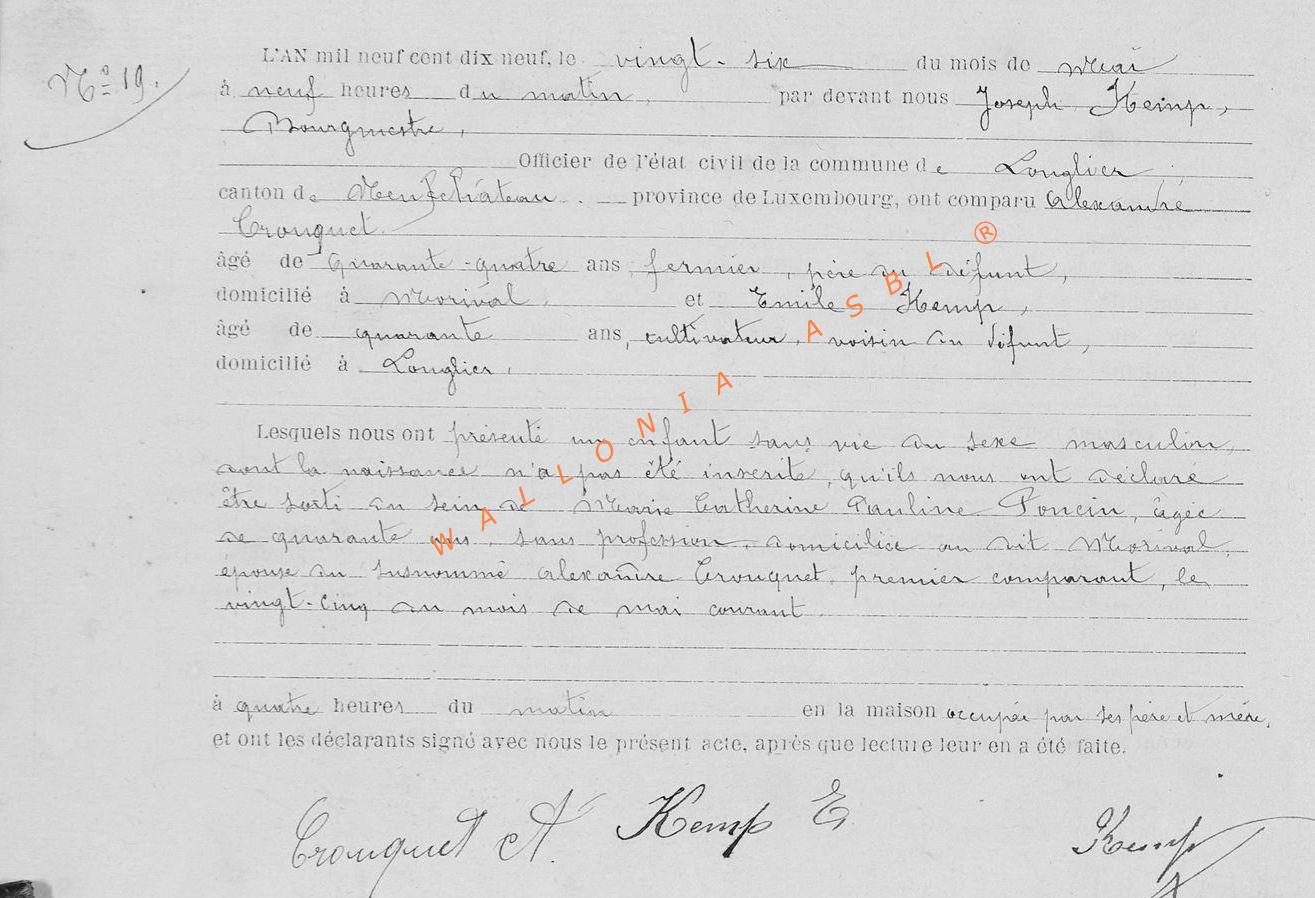 Nº 19.
L'AN mil neuf cent dix neuf, le vingt-six du mois de mai
à neuf heures du matin, par devant nous Joseph Kemp,
Bourgmestre,
Officier de l'état civil de la commune de Longlier,
canton de Neufchâteau. province de Luxembourg, ont comparu Alexandre
Crouquet
âgé de quarante-quatre ans, fermier, père du défunt,
domicilié à Morival, et Emile Kemp,
âgé de quarante ans, cultivateur, voisin du défunt,
domicilié à Longlier,
Lesquels nous ont présenté un enfant sans vie du sexe masculin,
dont la naissance n'a pas été inscrite, qu'ils nous ont déclaré
être sorti du sein de Marie Catherine Pauline Poncin, âgée
de quarante ans, sans profession, domiciliée au dit Morival,
épouse du susnommé Alexandre Crouquet, premier comparant, le
vingt-cinq du mois de mai courant
à quatre heures du matin en la maison occupée par ses père et mère,
et ont les déclarants signé avec nous le présent acte, après que lecture leur en a été faite.
Crouquet A. Kemp E Kemp
WALLONIA ASBL ®